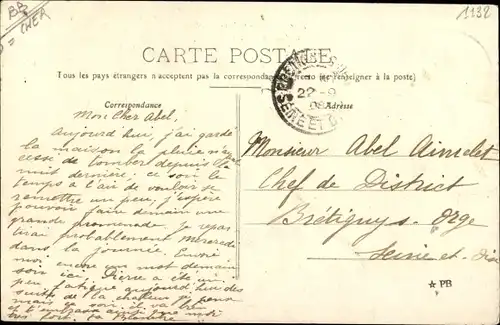 BB
= CHER
1132
CARTE POSTALE
Tous les pays étrangers n'acceptent pas la correspondance au recto (se renseigner à la poste)
Correspondance
Adresse
22-9
08
SEINE ET O
Mon Cher Abel,
Aujourd'hui, j'ai gardé
la maison la pluie n'a
cessé de tomber depuis la
nuit dernière; ce soir le
temps a l'air de vouloir se
remettre un peu, j'espère
pouvoir faire demain une
grande promenade. Je repar
tirai probablement Mercredi
dans la journée. Envoie
moi encore un mot demain
soir ici. Pierre a été un
peu fatigué aujourd'hui des
suites de la chaleur je pense
mais ce soir il va
et t'embrasse ainsi que moi
très fort. ta
Monsieur Abel Aimelet
Chef de District
Brétigny s. Orge
Seine et Oise
★ PB